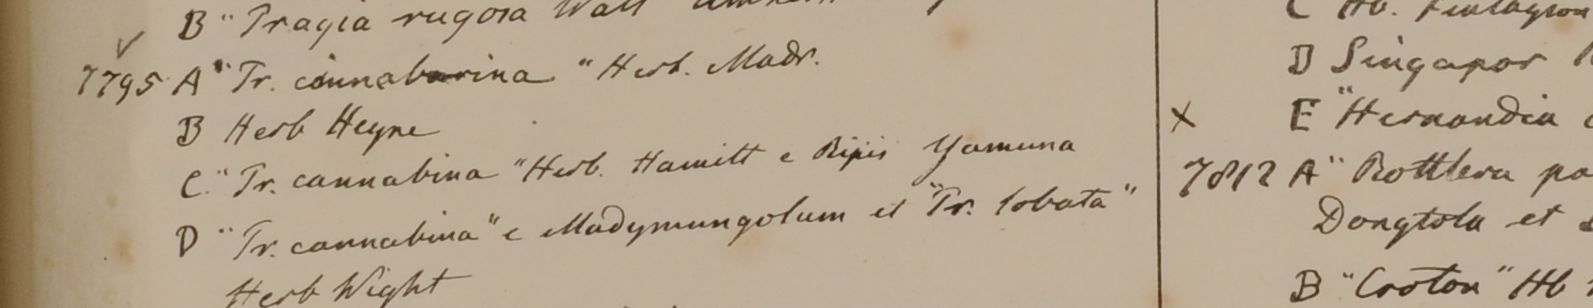 B "Tragia rugosa Wall
7795 A "Tr. cannabarina" Herb. Madr.
B Herb Heyne
C. "Tr. cannabina" Herb. Hamilt e Ripis Yamuna
D "Tr. cannabina" e Madymungolum et "Tr. lobata"
Herb Wight
C Hb. Finlayson
D Singapor
E "Hernandia
7812 A "Rottlera
Dongtola et
B "Croton" Hb